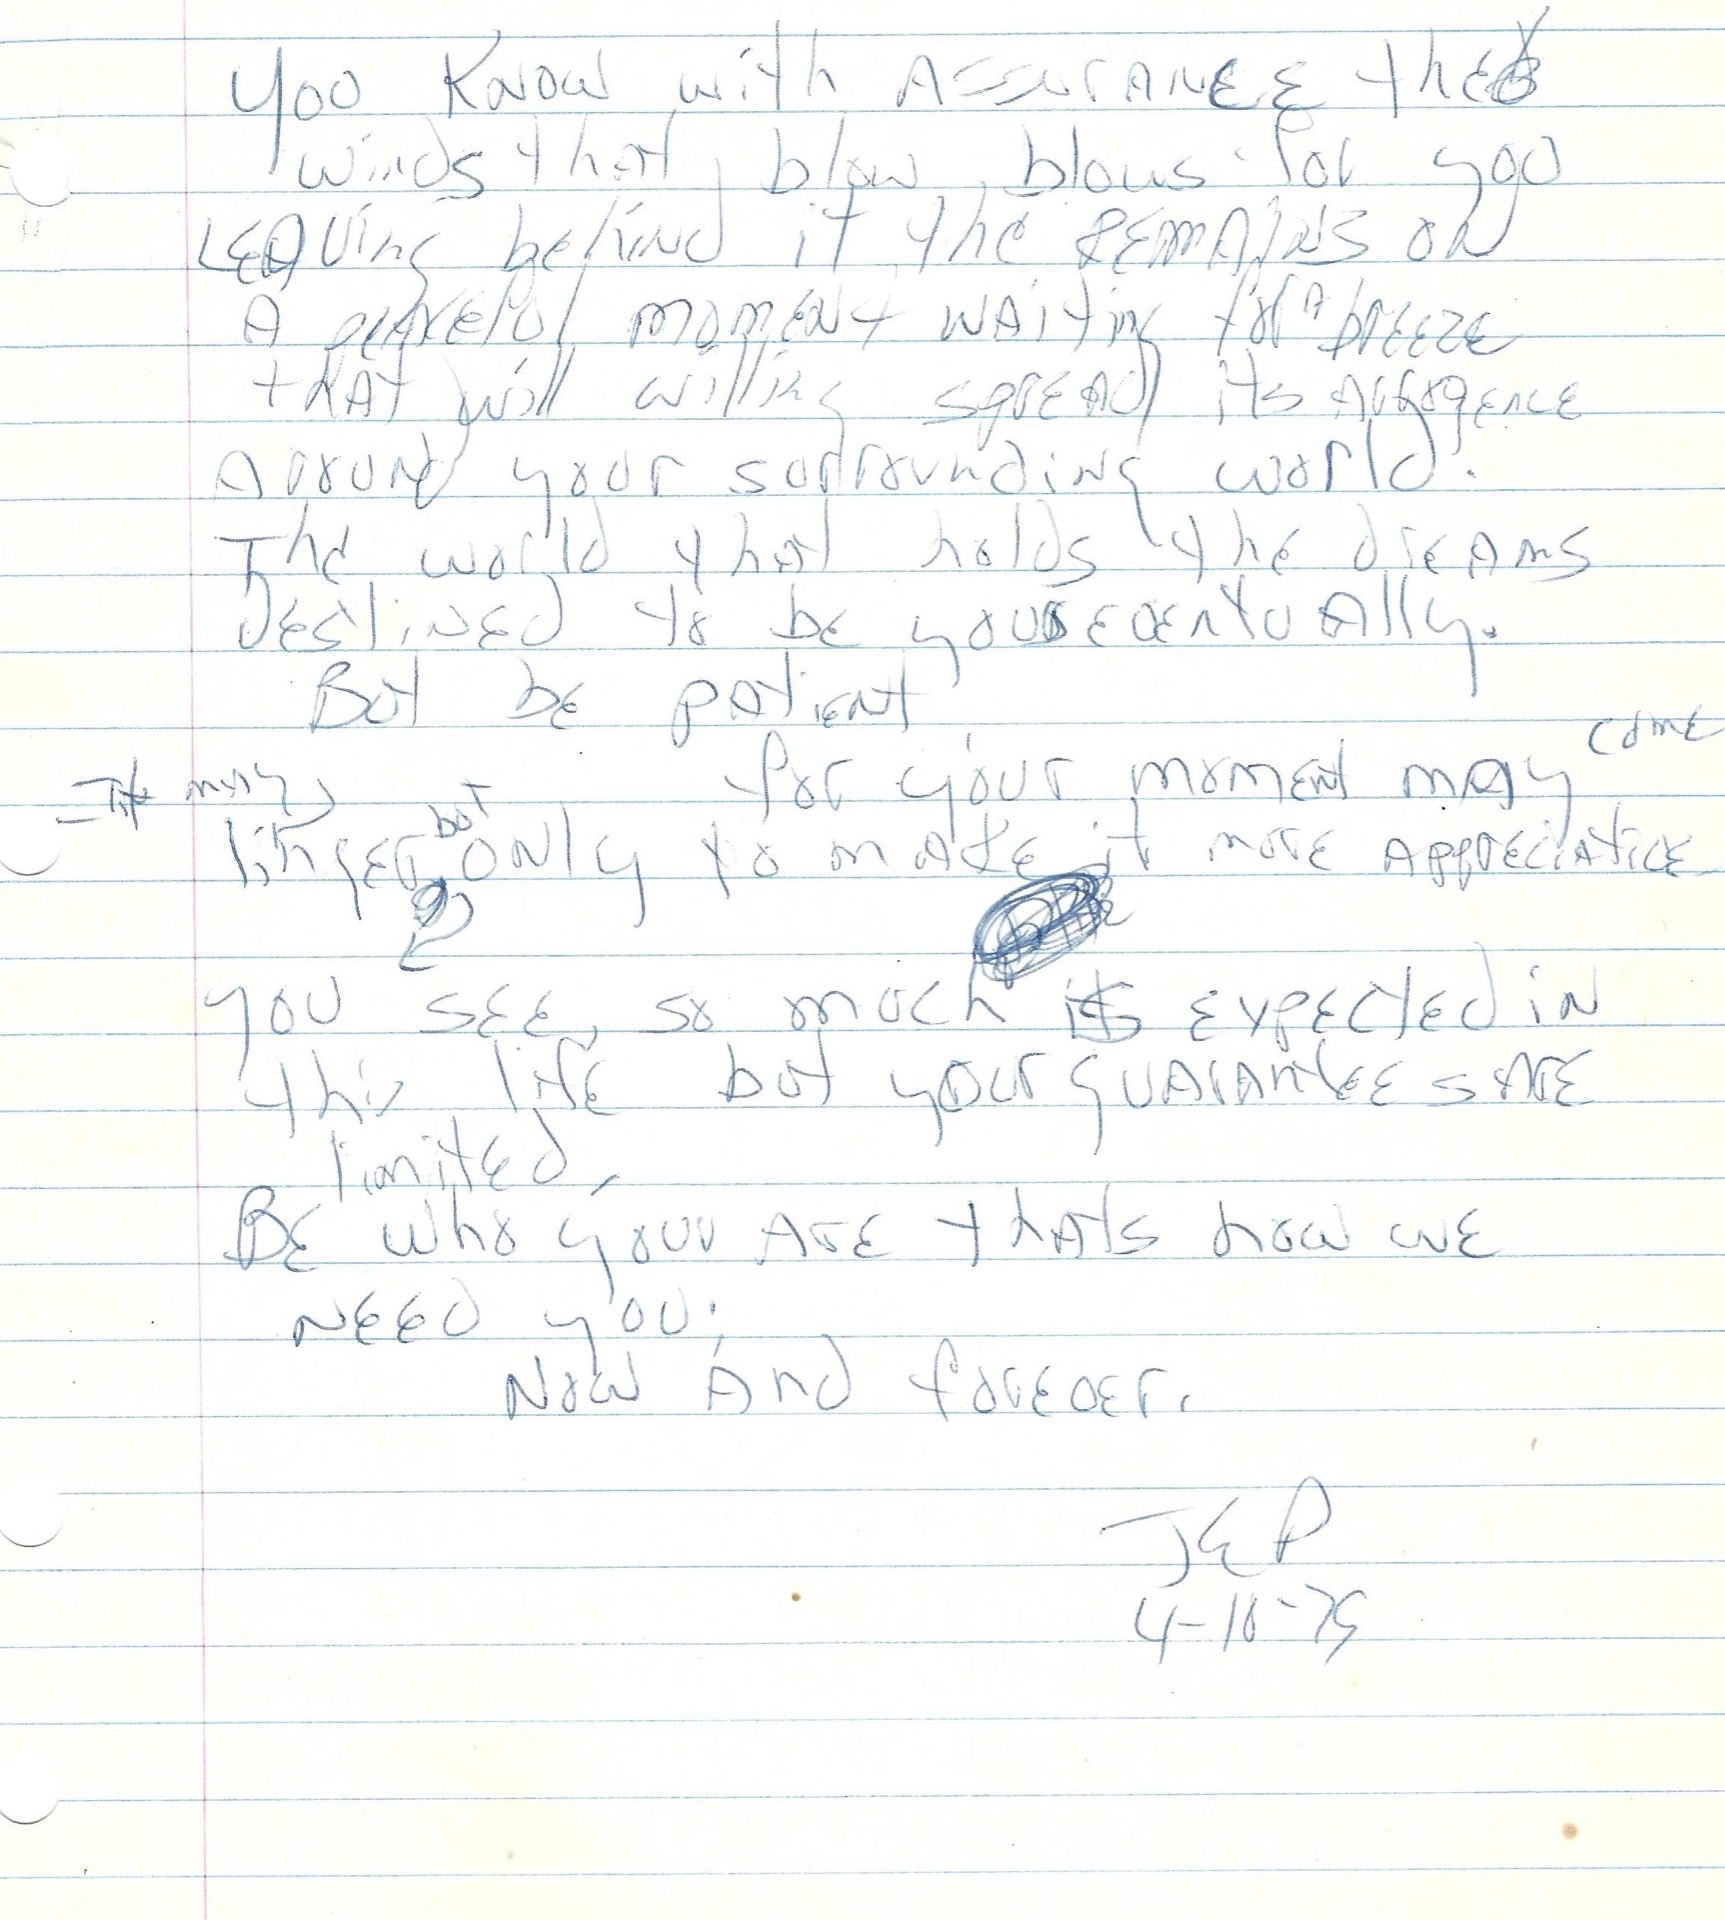 You Know with Assurance the
winds that blow, blows for you
LEAVing behind it the REMAINS on
A peaceful moment waiting for A breeze
that will willing spread its
Around your surrounding world.
The world that holds the dreams
Destined to be yours eventually.
But be patient
for your moment may come
It may
linger but only to make it more appreciative
you see, so much is expected in
this life but your guarantees are
limited,
Be who your are thats how we
need you.
Now And forever.
JEP
4-10-75